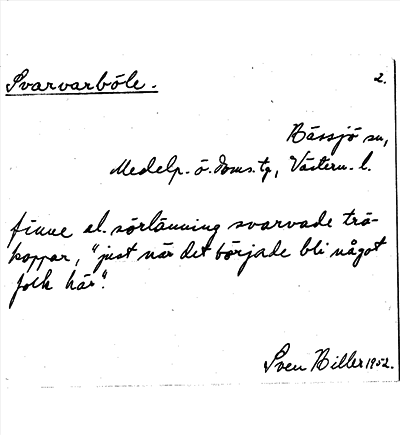 Svarvarböle.
2.
Hässjö sn,
Medelp. ö. doms. tg, Västern. l.
finne el. sörlänning svarvade trä-
koppar, "just när det började bli något
folk här".
Sven Hiller 1952.